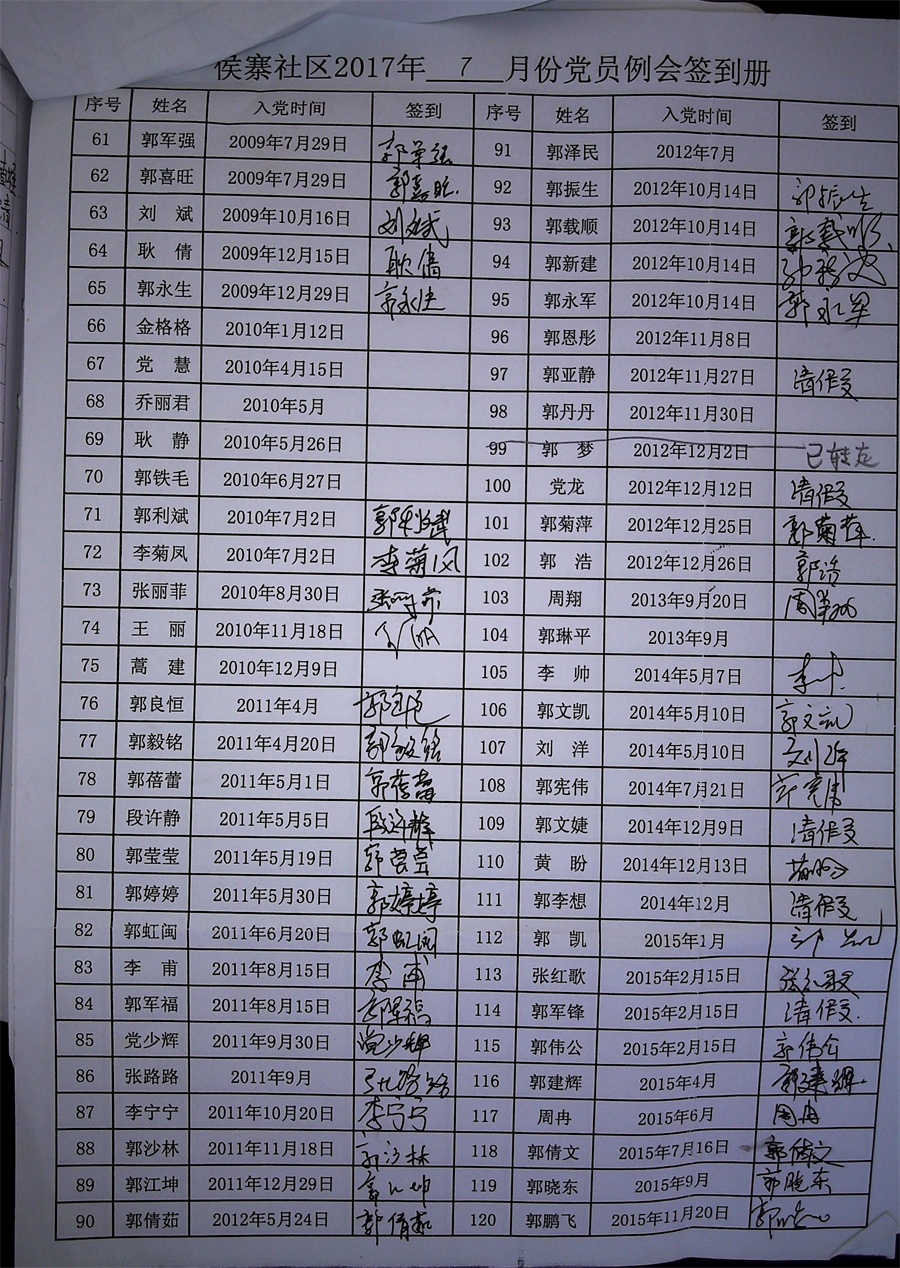 侯寨社区2017年 7 月份党员例会签到册
序号 姓名 入党时间 签到 序号 姓名 入党时间 签到
61 郭军强 2009年7月29日 郭军强 91 郭泽民 2012年7月
62 郭喜旺 2009年7月29日 郭喜旺. 92 郭振生 2012年10月14日 郭振生
63 刘 斌 2009年10月16日 刘斌 93 郭载顺 2012年10月14日 郭载顺
64 耿 倩 2009年12月15日 耿倩 94 郭新建 2012年10月14日
65 郭永生 2009年12月29日 郭永生 95 郭永军 2012年10月14日 郭永军
66 金格格 2010年1月12日 96 郭恩彤 2012年11月8日
67 党 慧 2010年4月15日 97 郭亚静 2012年11月27日 请假
68 乔丽君 2010年5月 98 郭丹丹 2012年11月30日
69 耿 静 2010年5月26日 99 郭 梦 2012年12月2日 已转走
70 郭铁毛 2010年6月27日 100 党龙 2012年12月12日 请假
71 郭利斌 2010年7月2日 郭利斌 101 郭菊萍 2012年12月25日 郭菊萍.
72 李菊凤 2010年7月2日 李菊凤 102 郭 浩 2012年12月26日 郭浩
73 张丽菲 2010年8月30日 张丽菲 103 周翔 2013年9月20日 周翔
74 王 丽 2010年11月18日 104 郭琳平 2013年9月
75 蒿 建 2010年12月9日 105 李 帅 2014年5月7日 李帅
76 郭良恒 2011年4月 郭良恒 106 郭文凯 2014年5月10日 郭文凯
77 郭毅铭 2011年4月20日 郭毅铭 107 刘 洋 2014年5月10日 刘洋
78 郭蓓蕾 2011年5月1日 郭蓓蕾 108 郭宪伟 2014年7月21日 郭宪伟
79 段许静 2011年5月5日 段许静 109 郭文婕 2014年12月9日 请假
80 郭莹莹 2011年5月19日 郭莹莹 110 黄 盼 2014年12月13日 黄盼
81 郭婷婷 2011年5月30日 郭婷婷 111 郭李想 2014年12月 请假
82 郭虹闽 2011年6月20日 郭虹闽 112 郭 凯 2015年1月 郭凯
83 李 甫 2011年8月15日 李甫 113 张红歌 2015年2月15日 张红歌
84 郭军福 2011年8月15日 郭军福 114 郭军锋 2015年2月15日 请假
85 党少辉 2011年9月30日 党少辉 115 郭伟公 2015年2月15日 郭伟公
86 张路路 2011年9月 张路路 116 郭建辉 2015年4月 郭建辉
87 李宁宁 2011年10月20日 李宁宁 117 周冉 2015年6月 周冉
88 郭沙林 2011年11月18日 郭沙林 118 郭倩文 2015年7月16日 郭倩文
89 郭江坤 2011年12月29日 郭江坤 119 郭晓东 2015年9月 郭晓东
90 郭倩茹 2012年5月24日 郭倩茹 120 郭鹏飞 2015年11月20日